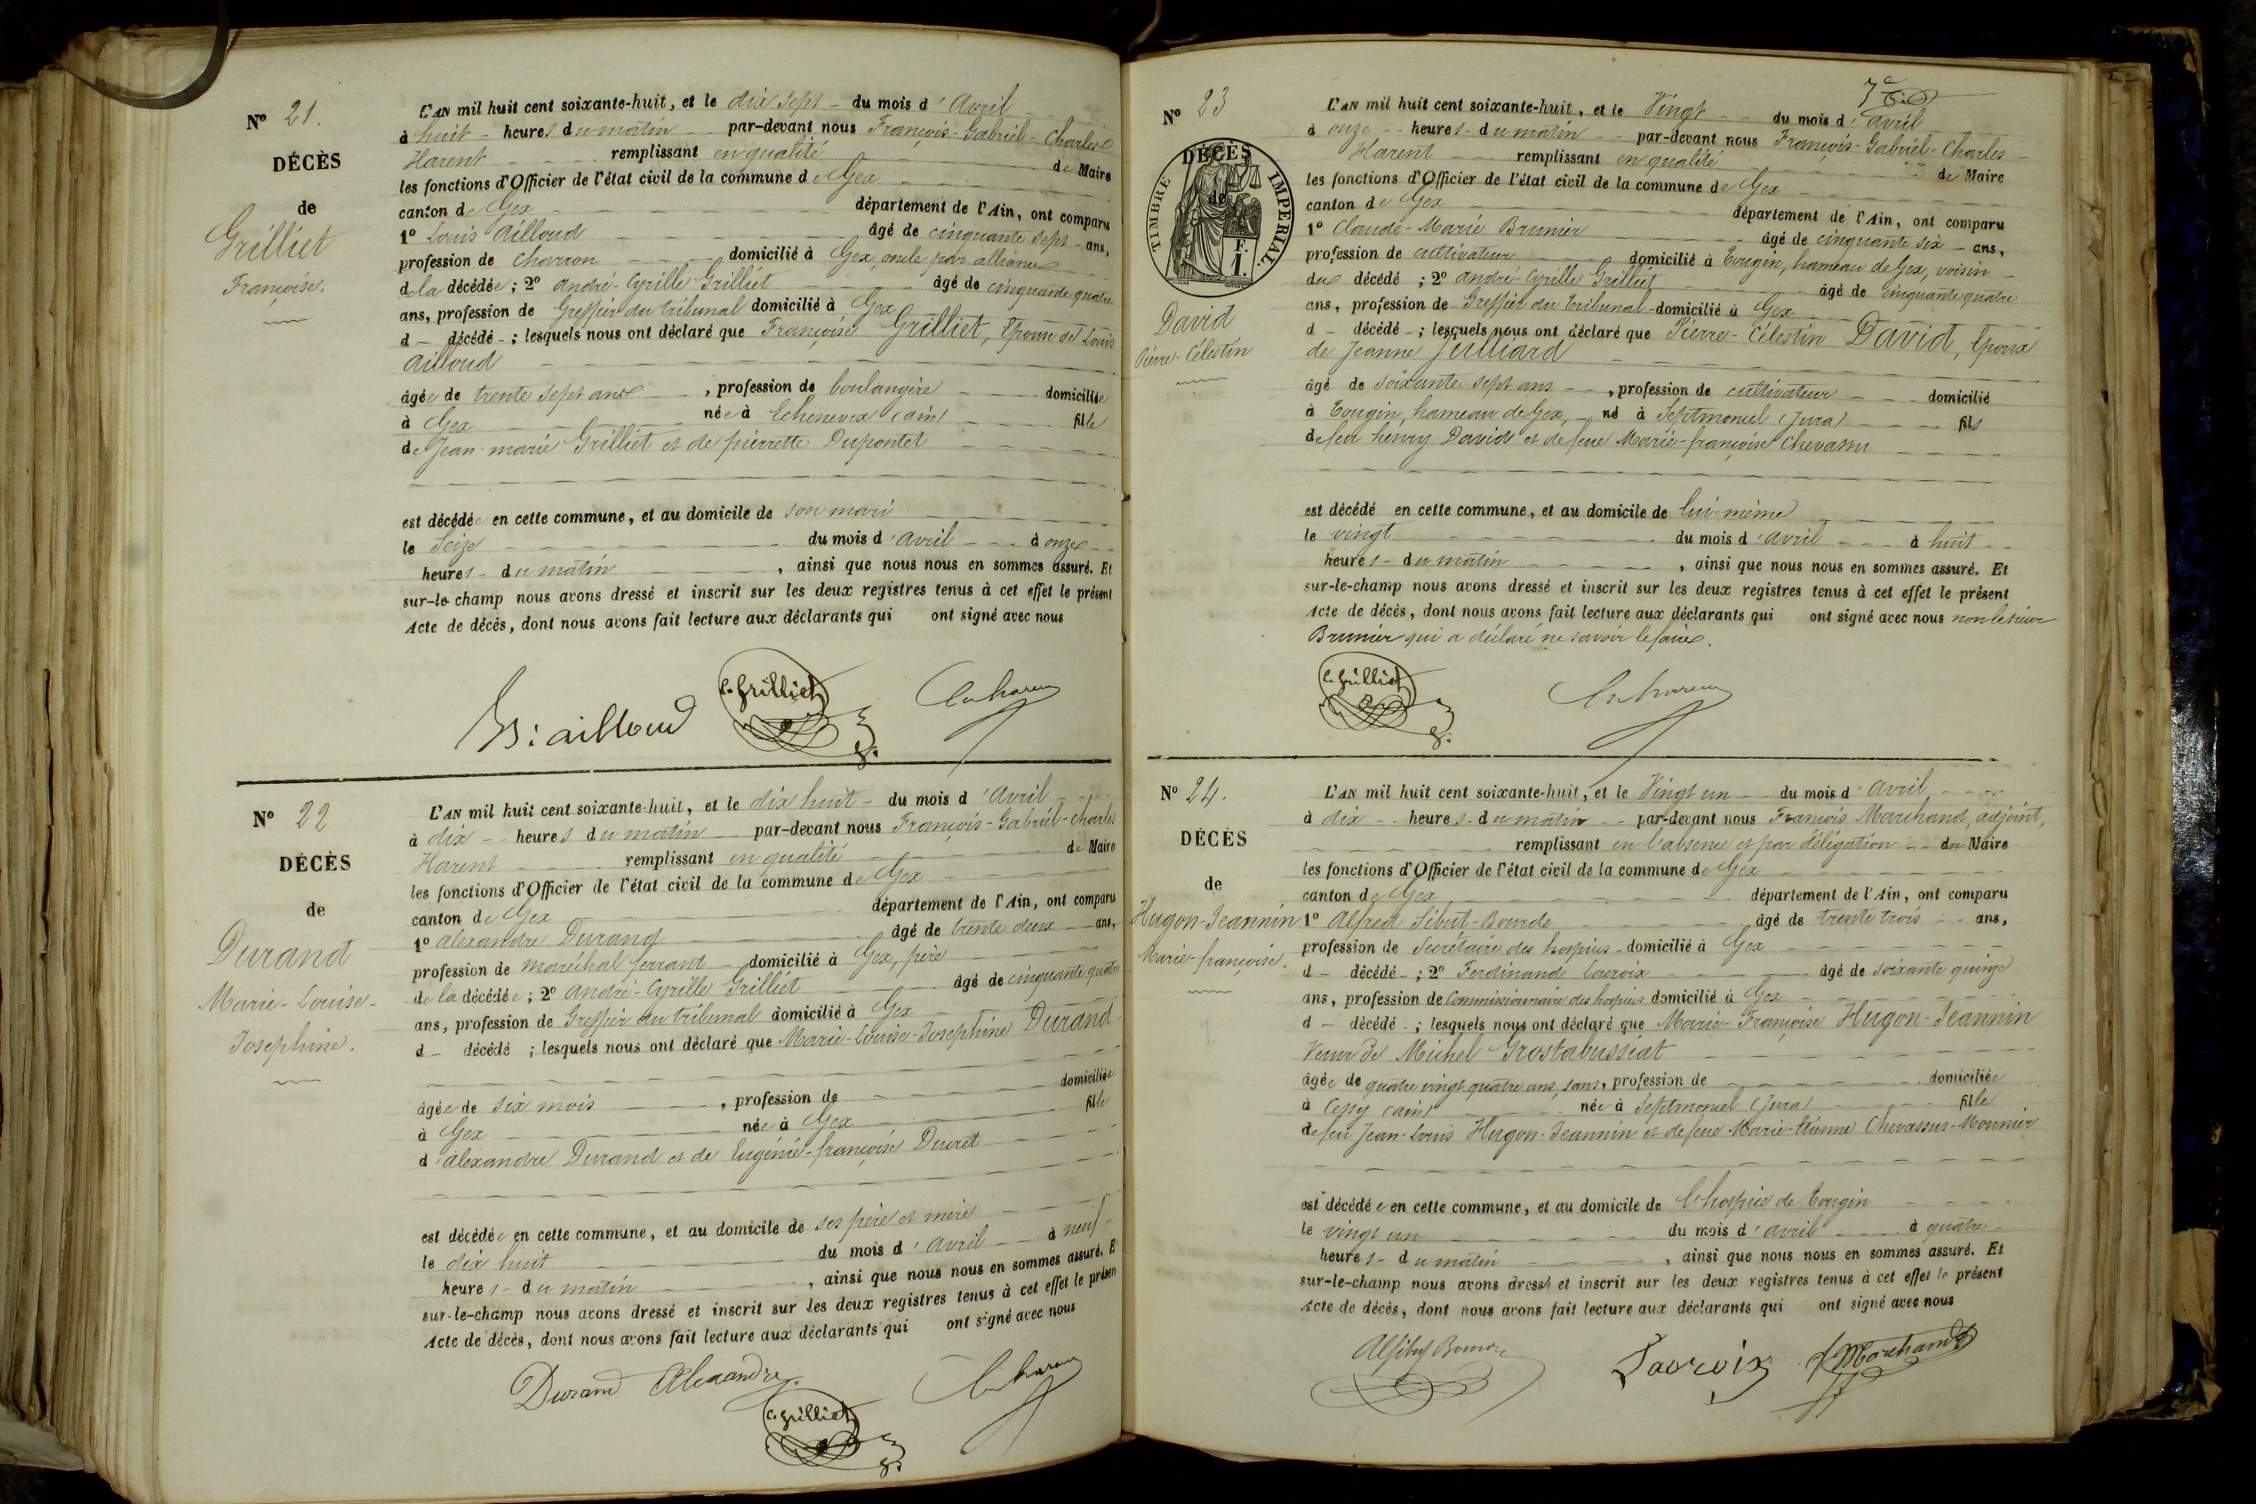 Nº 21.
DÉCÈS
de
Grilliet
Françoise.
L'AN mil huit cent soixante-huit, et le dix sept du mois d'Avril
à huit heures du matin par-devant nous François-Gabriel-Charles
Harent remplissant en qualité de Maire
les fonctions d'Officier de l'état civil de la commune de Gex
canton de Gex département de l'Ain, ont comparu
1º Louis Ailloud âgé de cinquante sept ans,
profession de Charron domicilié à Gex, oncle par alliance
de la décédée ; 2º André-Cyrille Grilliet âgé de cinquante quatre
ans, profession de Greffier du tribunal domicilié à Gex
d décédé ; lesquels nous ont déclaré que Françoise Grilliet, Epouse de Louis
Ailloud
âgée de trente sept ans , profession de boulangère domiciliée
à Gex née à Echenevex (ain) fille
de Jean-marie Grilliet et de pierrette Dupontet
est décédée en cette commune, et au domicile de son mari
le Seize du mois d'avril à onze
heures du matin , ainsi que nous nous en sommes assuré. Et
sur-le-champ nous avons dressé et inscrit sur les deux registres tenus à cet effet le présent
Acte de décès, dont nous avons fait lecture aux déclarants qui ont signé avec nous
ailloud C. Grilliet
Nº 22
DÉCÈS
de
Durand
Marie-Louise-
Josephine.
L'AN mil huit cent soixante-huit, et le dix huit du mois d'Avril
à dix heures du matin par-devant nous François-Gabriel-Charles
Harent remplissant en qualité de Maire
les fonctions d'Officier de l'état civil de la commune de Gex
canton de Gex département de l'Ain, ont comparu
1º Alexandre Durand âgé de trente deux ans,
profession de maréchal ferrant domicilié à Gex, père
de la décédée ; 2º André-Cyrille Grilliet âgé de cinquante quatre
ans, profession de Greffier du tribunal domicilié à Gex
d décédé ; lesquels nous ont déclaré que Marie-Louise-Josephine Durand
âgée de six mois , profession de domiciliée
à Gex née à Gex fille
d'alexandre Durand et de Eugénie-françoise Ducret
est décédée en cette commune, et au domicile de ses père et mère
le dix huit du mois d'avril à neuf
heures du matin , ainsi que nous nous en sommes assuré. Et
sur-le-champ nous avons dressé et inscrit sur les deux registres tenus à cet effet le présent
Acte de décès, dont nous avons fait lecture aux déclarants qui ont signé avec nous
Durand Alexandre
C. Grilliet
Nº 23
TIMBRE IMPÉRIAL
DÉCÈS
de
David
Pierre-Célestin
L'AN mil huit cent soixante-huit, et le Vingt du mois d'avril
à onze heures du matin par-devant nous François-Gabriel-Charles
Harent remplissant en qualité de Maire
les fonctions d'Officier de l'état civil de la commune de Gex
canton de Gex département de l'Ain, ont comparu
1º Claude-Marie Brunier âgé de cinquante six ans,
profession de cultivateur domicilié à Tougin, hameau de Gex, voisin
du décédé ; 2º André-Cyrille Grilliet âgé de cinquante quatre
ans, profession de Greffier du tribunal domicilié à Gex
d décédé ; lesquels nous ont déclaré que Pierre-Célestin David, Epoux
de Jeanne Julliard
âgé de soixante sept ans , profession de cultivateur domicilié
à Tougin, hameau de Gex, né à Septmoncel (Jura) fils
de feu henry David et de feue Marie-françoise Chevassu
est décédé en cette commune, et au domicile de lui-même
le vingt du mois d'avril à huit
heures du matin , ainsi que nous nous en sommes assuré. Et
sur-le-champ nous avons dressé et inscrit sur les deux registres tenus à cet effet le présent
Acte de décès, dont nous avons fait lecture aux déclarants qui ont signé avec nous non le sieur
Brunier qui a déclaré ne savoir le faire.
C. Grilliet
Nº 24.
DÉCÈS
de
Hugon-Jeannin
Marie-françoise.
L'AN mil huit cent soixante-huit, et le Vingt un du mois d'avril
à dix heures du matin par-devant nous François Marchand, adjoint,
remplissant en l'absence et par délégation du Maire
les fonctions d'Officier de l'état civil de la commune de Gex
canton de Gex département de l'Ain, ont comparu
1º Alfred Sibut-Bourde âgé de trente trois ans,
profession de Secrétaire des hospices domicilié à Gex
d décédé ; 2º Ferdinand Lacroix âgé de soixante quinze
ans, profession de Commissionnaire des hospices domicilié à Gex
d décédé ; lesquels nous ont déclaré que Marie-Françoise Hugon-Jeannin
Veuve de Michel Grostabussiat
âgée de quatre vingt quatre ans, sans, profession de domiciliée
à Cessy (ain) née à Septmoncel (Jura) fille
de feu Jean-Louis Hugon-Jeannin et de feue Marie-Etienne Chevassus-Mounier
est décédée en cette commune, et au domicile de l'hospice de Tougin
le vingt un du mois d'avril à quatre
heures du matin , ainsi que nous nous en sommes assuré. Et
sur-le-champ nous avons dressé et inscrit sur les deux registres tenus à cet effet le présent
Acte de décès, dont nous avons fait lecture aux déclarants qui ont signé avec nous
Lacroix f Marchand